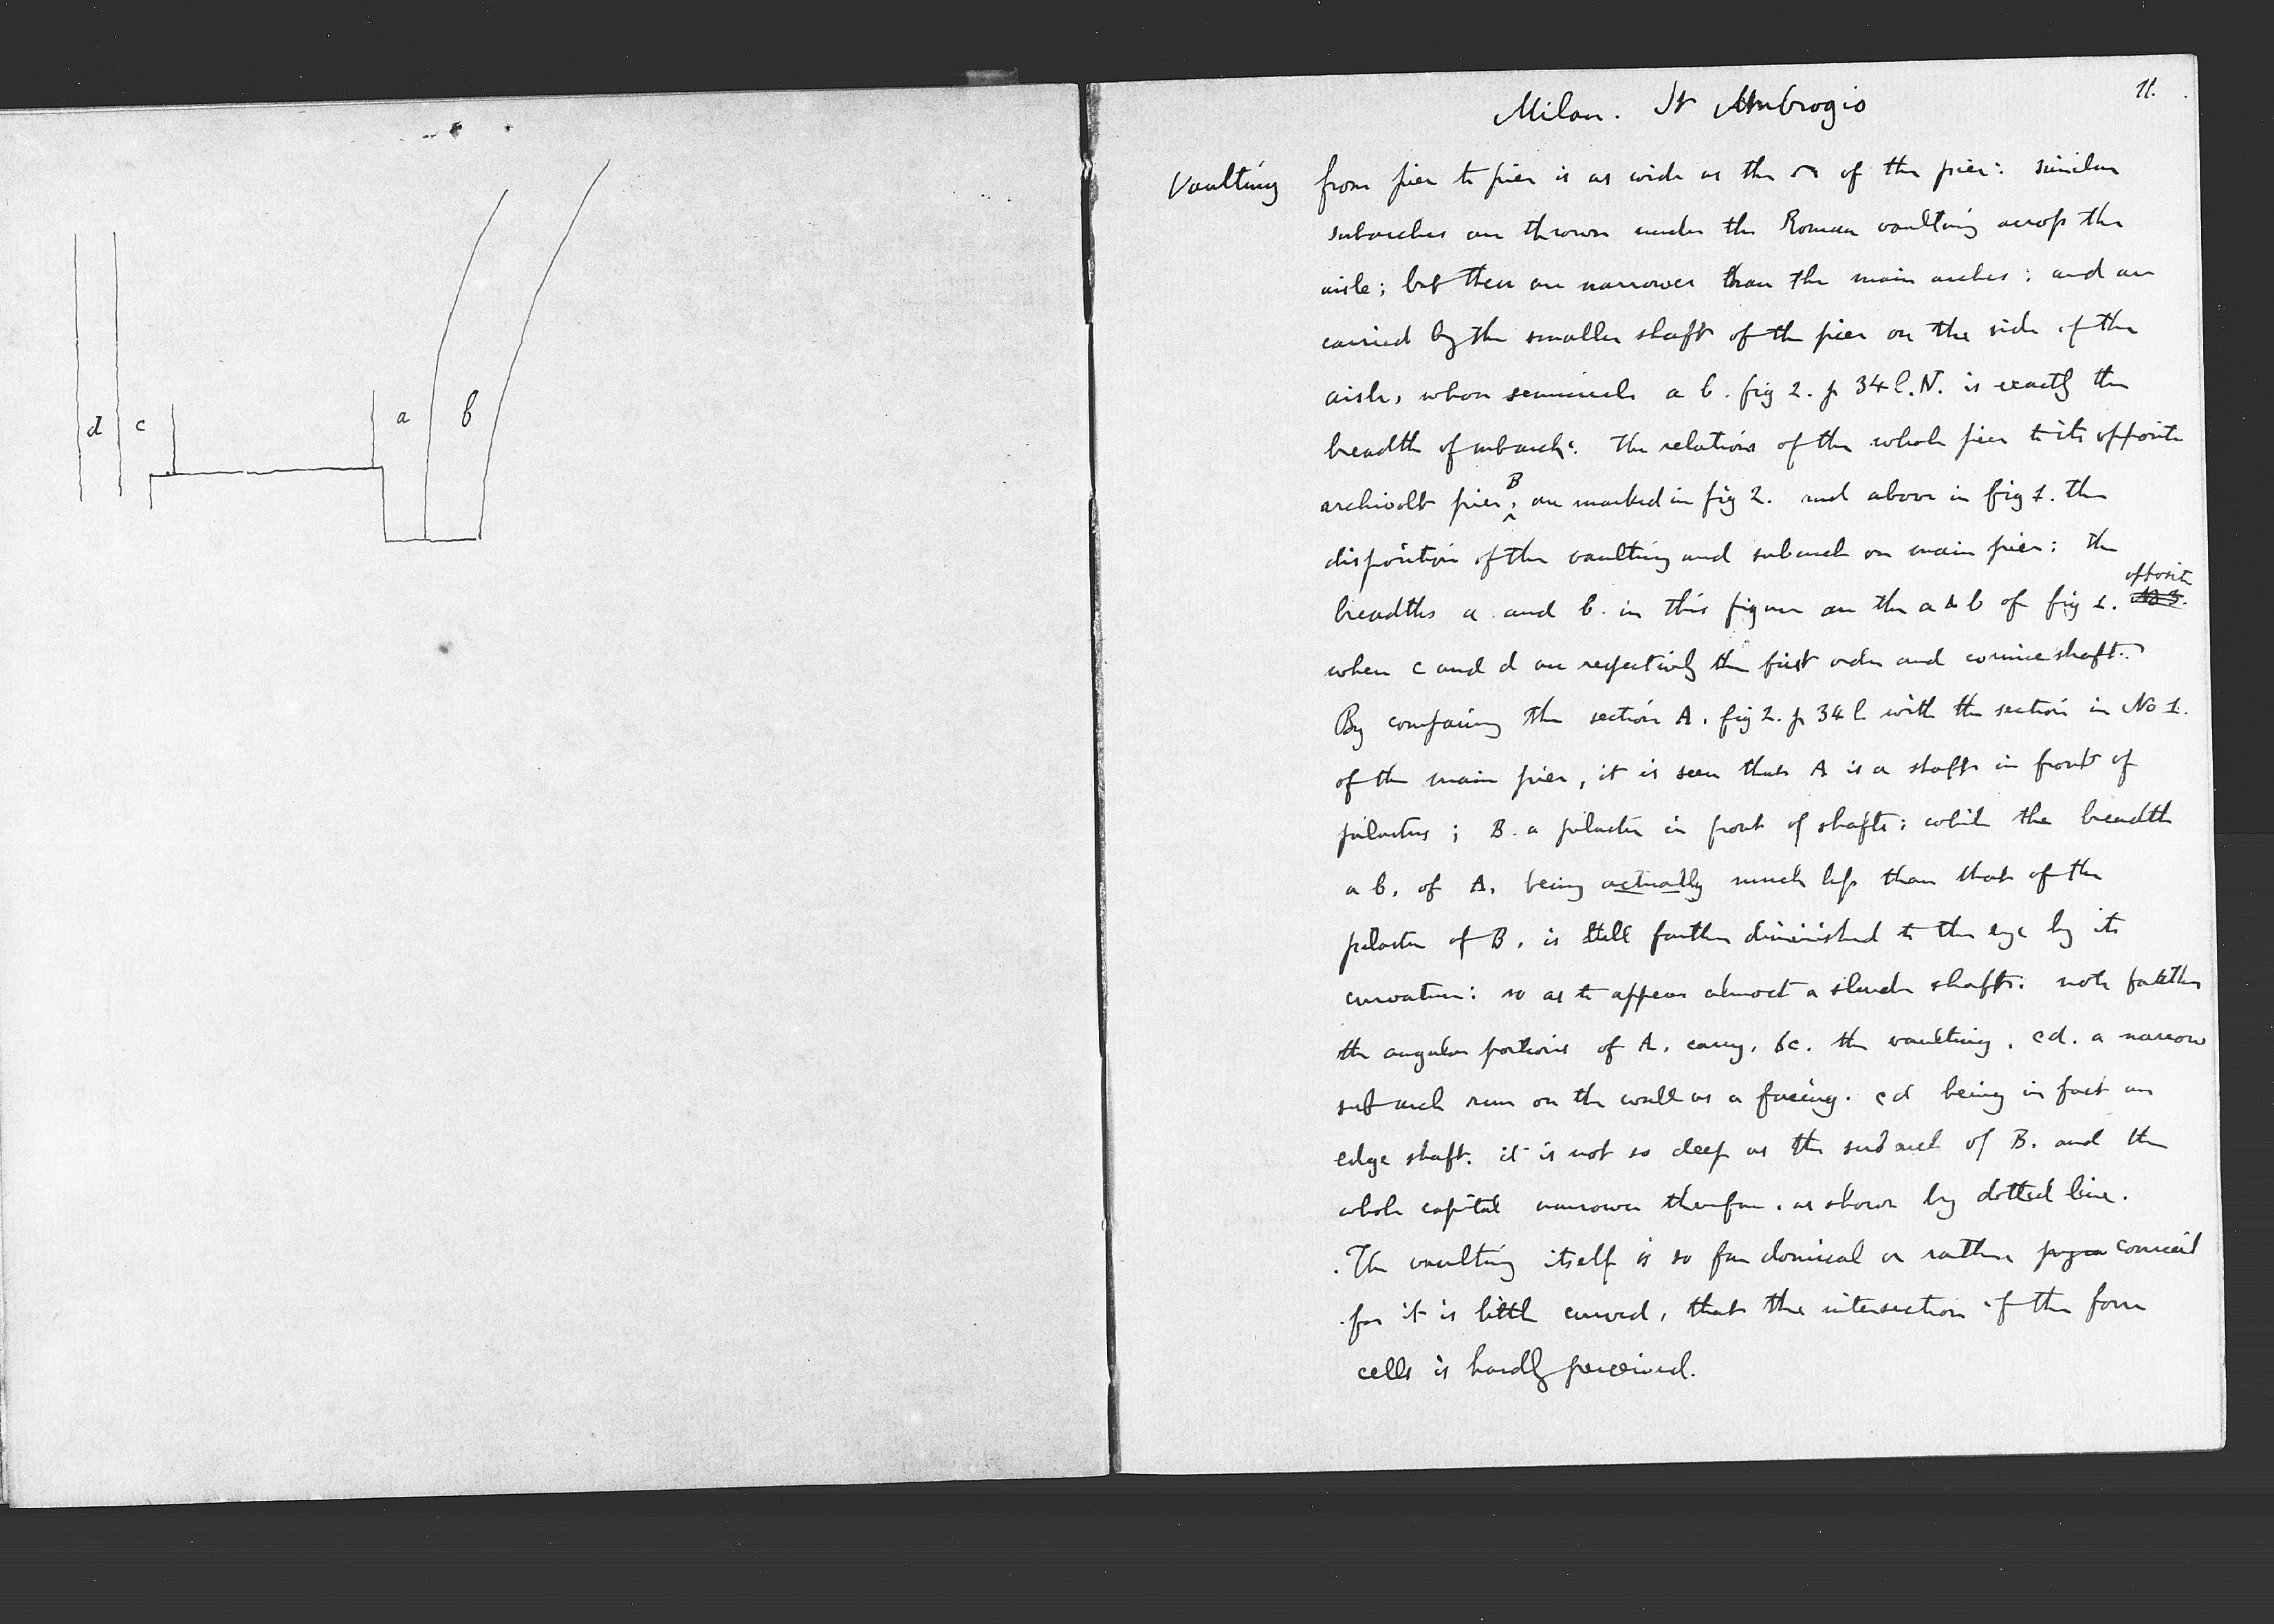 d c a b
11.
Milan. St Ambrogio
Vaulting from pier to pier is as wide as the of the pier: similar
subarches are thrown under the Roman vaulting across the
aisle; but these are narrower than the main arches: and are
carried by the smaller shaft of the pier on the side of the
aisle, whose semicircle a b. fig 2. p 34 l. N. is exactly the
breadth of subarch: The relations of the whole pier to its opposite
archivolt pier, B are marked in fig 2. and above in fig 1. the
disposition of the vaulting and subarch on main pier: the
breadths a and b. in this figure are the a & b of fig 1. opposite
when c and d are respectively the first order and cornice shaft.
By comparing the section A. fig 2. p 34 l with the section in No 1.
of the main pier, it is seen that A is a shaft in front of
pilasters; B. a pilaster in front of shafts: while the breadth
a b. of A. being actually much less than that of the
pilaster of B. is still farther diminished to the eye by its
curvature: so as to appear almost a slender shaft. note farther
the angular portions of A. carry, bc. the vaulting. cd. a narrow
sub arch run on the wall as a facing. cd being in fact an
edge shaft. it is not so deep as the subarch of B. and the
whole capital narrower therefore. as shown by dotted line.
The vaulting itself is so far domical or rather conical
for it is little curved, that the intersection of the four
cells is hardly perceived.